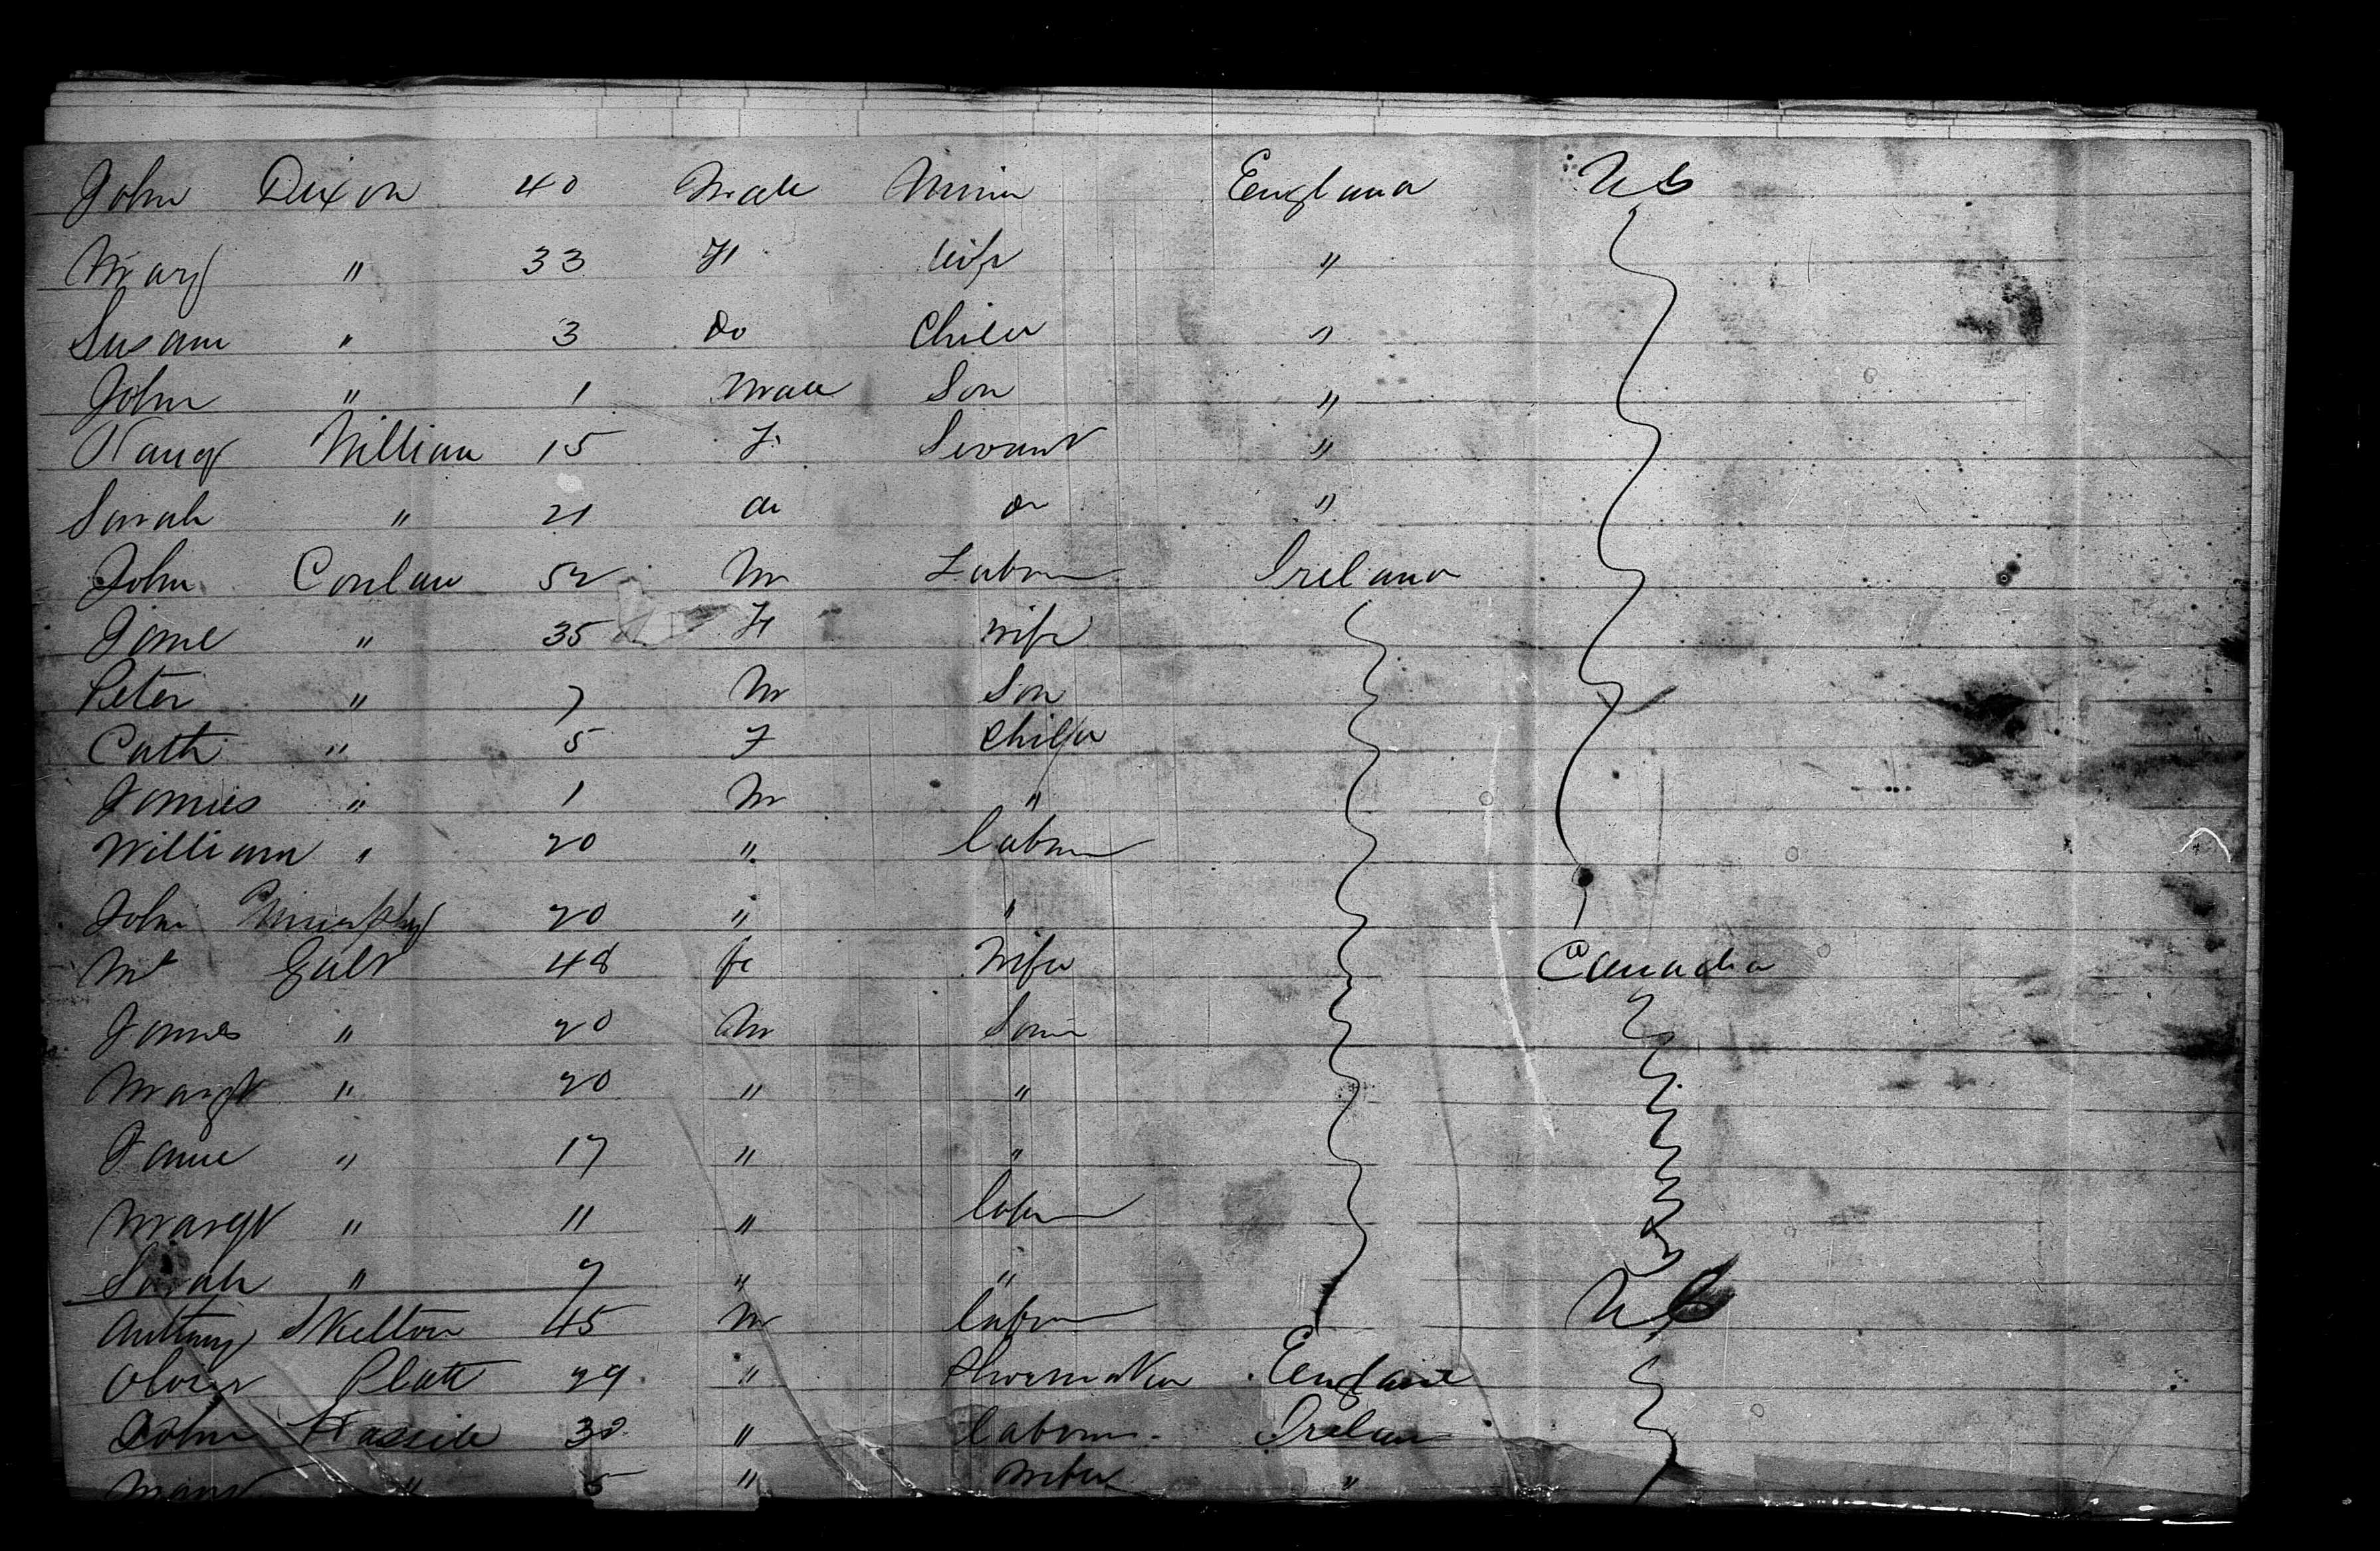 John Dixon 40 Male Miner England U S
Mary " 33 F wife "
Susan " 3 Do Child "
John " 1 Male Son "
Nancy William 15 F. Servant "
Sarah " 21 do do "
John Conlan 52 M Labor Ireland
Jane " 35 F wife
Peter " 7 M Son
Cath " 5 F Child
James " 1 M "
William " 20 " labor
John Murphy 20 " "
Mt Galt 48 fe Wife Canada
James " 20 M Son
Margt " 20 " "
Jane " 17 " "
Margt " 11 " labor
Sarah " 7 " "
Anthony Skelton 45 M labor U S
Oliver Platt 29 " Shoemaker England
John 30 " labor Ireland
Margt " 5 " wife "